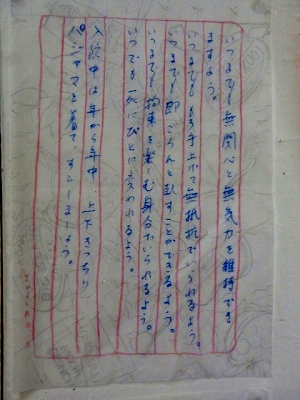 いつまでも無関心と無気力を維持でき
ますよう。
いつまでももろ手上げて無抵抗でいられるよう。
いつまでも即ごろんと臥すことができるよう。
いつまでも拘束を楽しむ身分でいられるよう。
いつでも死にびとに交われるよう。
入院中は年から年中 上下きっちり
パジャマを着て すごしましょう。